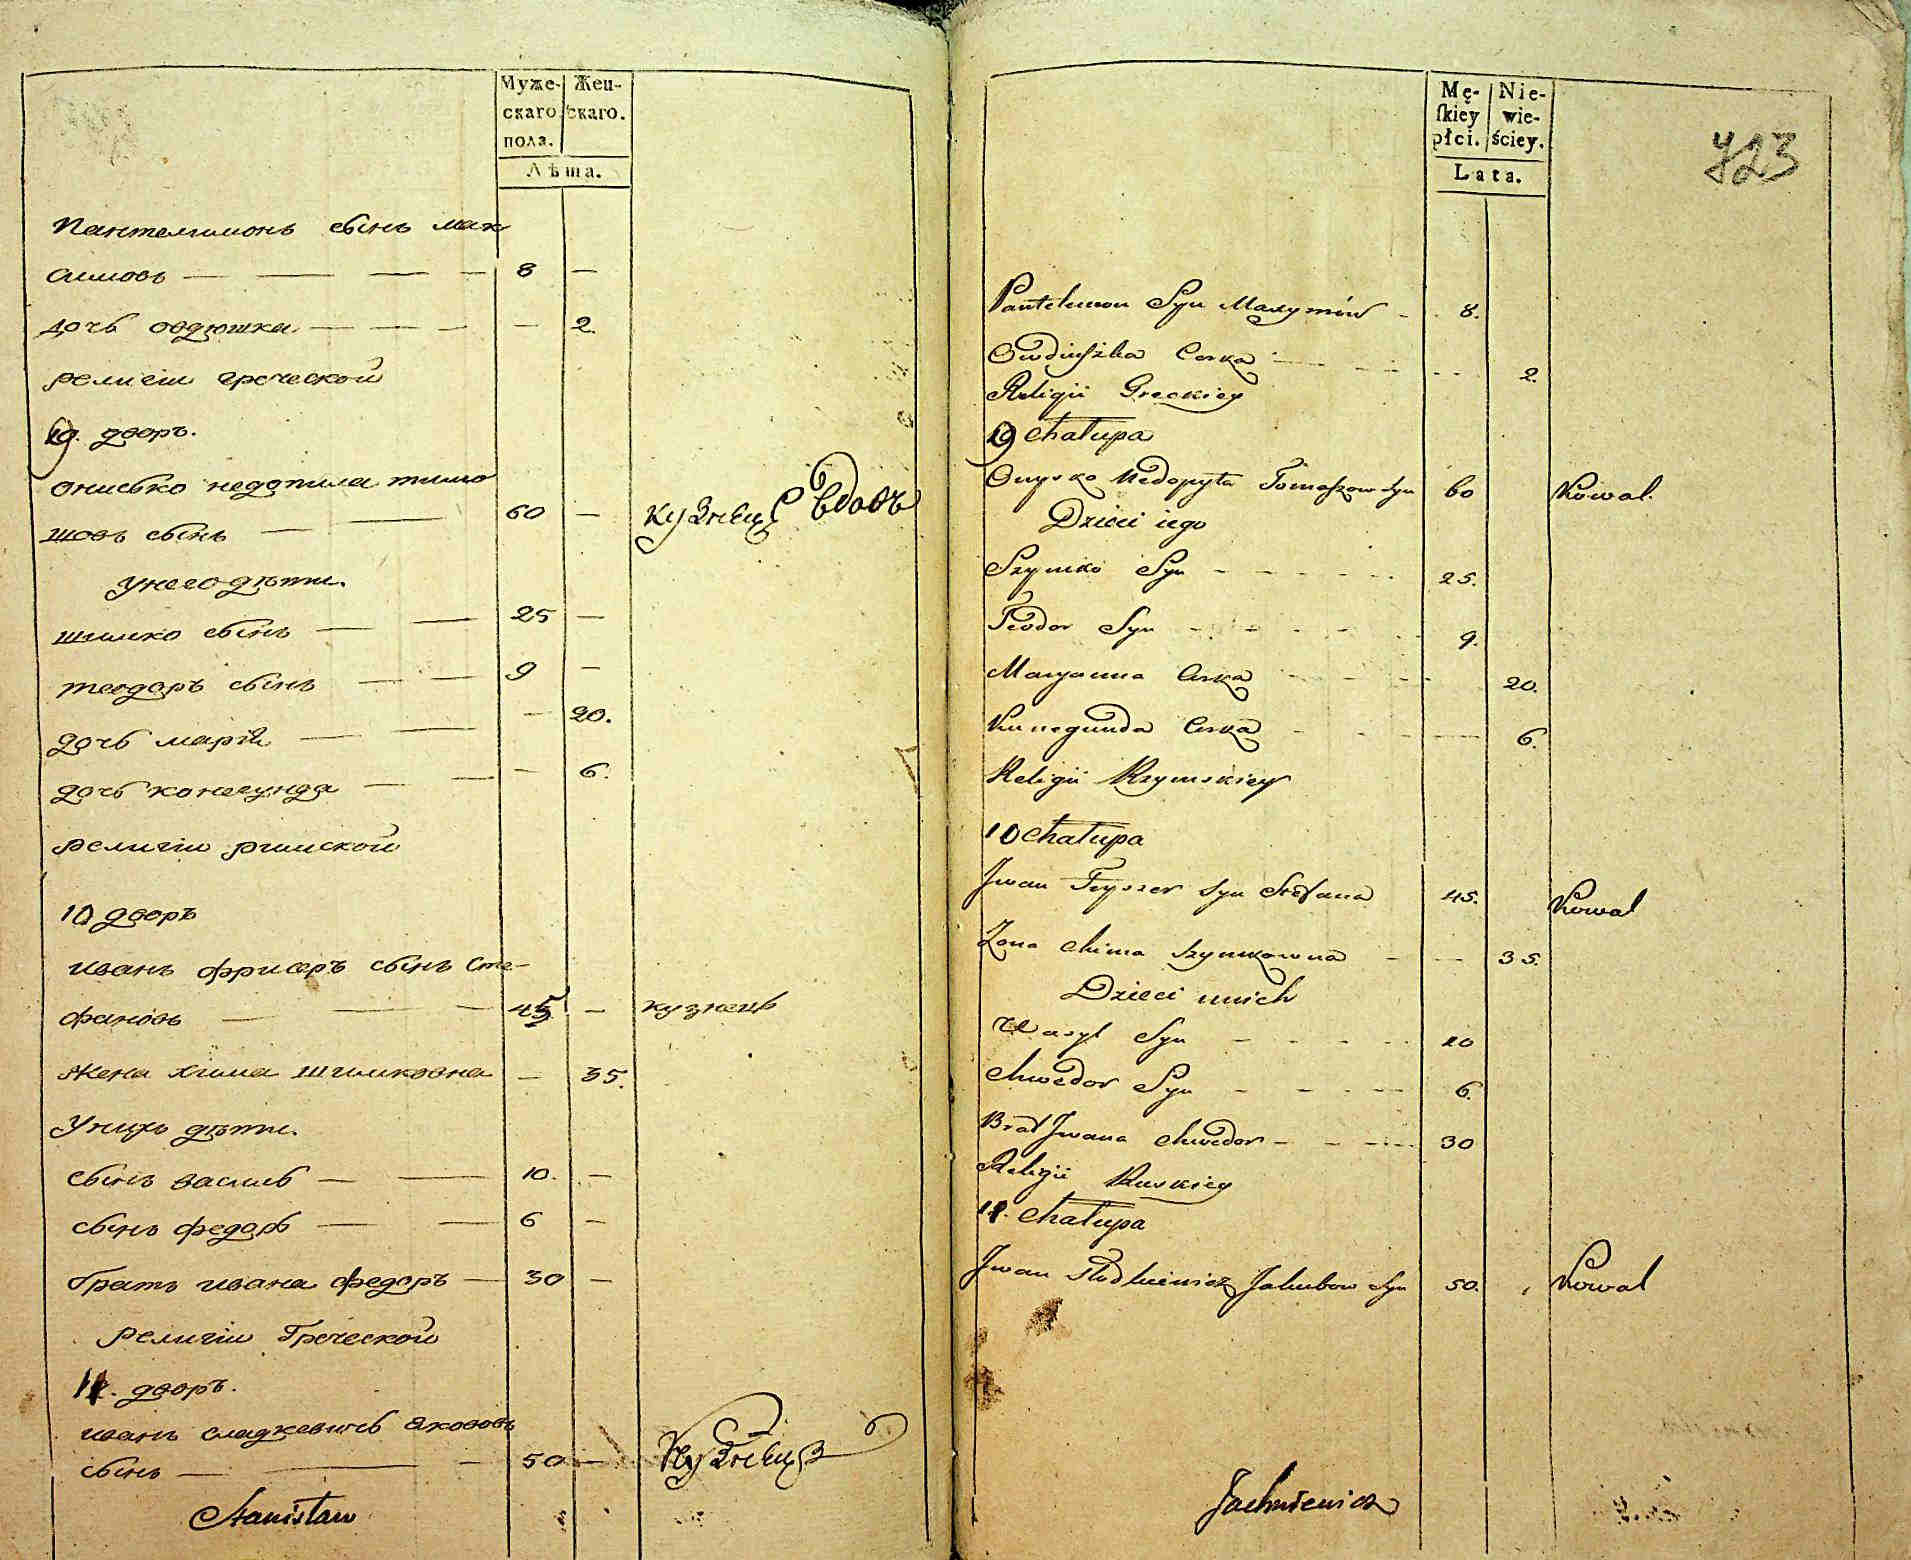 Муже-
скаго
пола.
Жен-
скаго.
Лѣта.
Пантелимонъ сынъ мак
симовъ — — — — 8 —
дочь овдюшка — — — — 2.
религіи греческой
19. дворъ.
онисько недопита тимо
шовъ сынъ — — 60 — кузнецъ Вдовъ
унего дѣти.
шимко сынъ — — 25 —
теодоръ сынъ — — 9 —
дочь марія — — — 20.
дочь конегунда — — — 6.
религіи римской
10 дворъ
иванъ фрисеръ сынъ Сте-
фановъ — — — 45 — кузнецъ
жена хима шимковна — 35.
Унихъ дѣти.
сынъ василь — — 10. —
сынъ федоръ — — 6 —
братъ ивана федоръ — 30 —
религіи Греческой
11. дворъ.
иванъ сладкевичь якововъ
сынъ — — — 50 — Кузнецъ
Stanisław
Mę-
skiey
płci.
Nie-
wie-
ściey.
Lata.
723
Pantelimon Syn Maxymów - 8.
Owdiuszka Corka - - - 2.
Religii Greckiey
19 Chałupa
Onysko Niedopyta Tomaszow Syn 60 Kowal.
Dzieci iego
Szymko Syn - - - - 25.
Teodor Syn - - - - 9.
Maryanna Corka - - - 20.
Kunegunda Corka - - - 6.
Religii Rzymskiey
10 Chałupa
Jwan Fryszer Syn Stefana 45. Kowal
Zona Chima Szymkowna - - 35.
Dzieci unich
Wasyl Syn - - - - 10
Chwedor Syn - - - - 6.
Brat Jwana Chwedor - - - 30
Religii Ruskiey
11. Chałupa
Jwan Słodkiewicz Jakubow Syn 50. Kowal
Jachniewicz